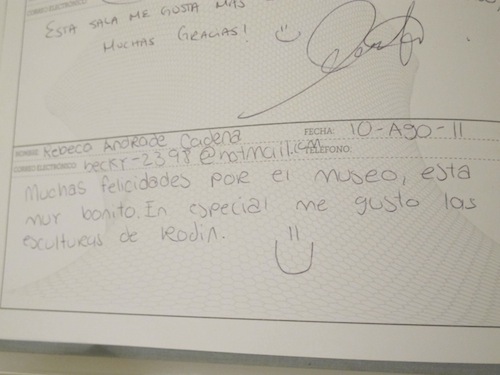 CORREO ELECTRÓNICO
ESTA SALA ME GUSTA MAS
MUCHAS GRACIAS!
NOMBRE: Rebeca Andrade Cadena FECHA: 10-AGO-11
CORREO ELECTRÓNICO: becky-2398@hotmail.com TELÉFONO:
Muchas felicidades por el museo, esta
muy bonito. En especial me gusto las
esculturas de Rodin.